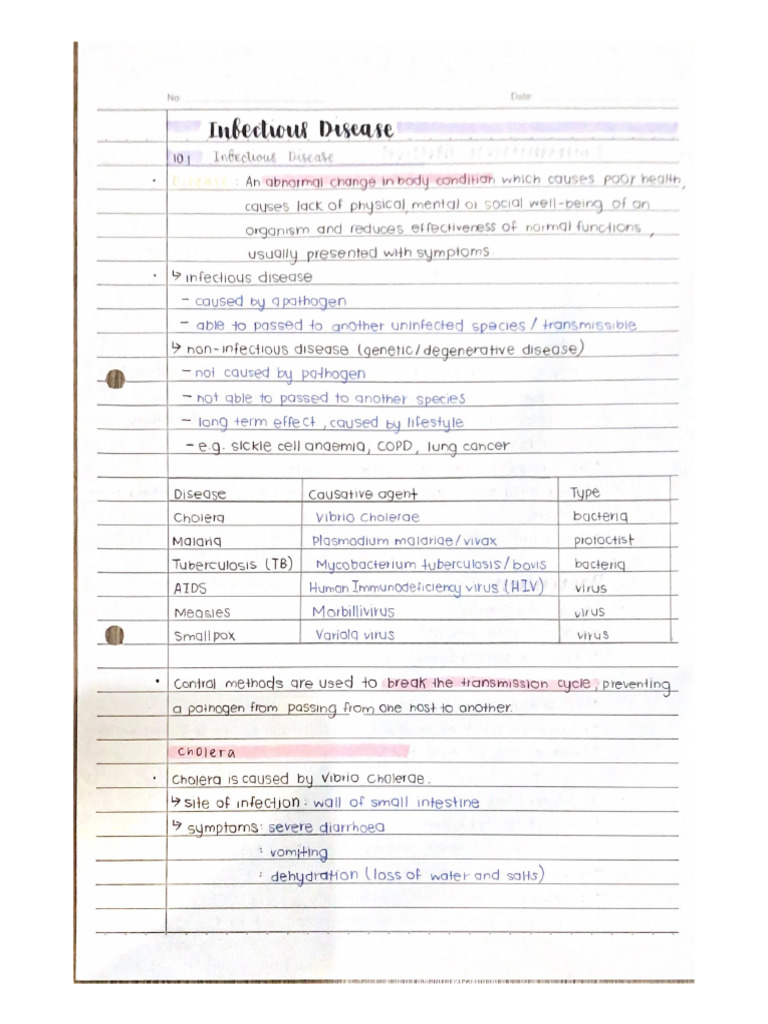 No: Date:
Infectious Disease
10.1 Infectious Disease
• Disease : An abnormal change in body condition which causes poor health,
causes lack of physical, mental or social well-being of an
organism and reduces effectiveness of normal functions,
usually presented with symptoms
• ↳ infectious disease
- caused by a pathogen
- able to passed to another uninfected species / transmissible
↳ non-infectious disease (genetic/degenerative disease)
- not caused by pathogen
- not able to passed to another species
- long term effect, caused by lifestyle
- e.g. sickle cell anaemia, COPD, lung cancer
Disease Causative agent Type
Cholera Vibrio Cholerae bacteria
Malaria Plasmodium malariae/vivax protoctist
Tuberculosis (TB) Mycobacterium tuberculosis/bovis bacteria
AIDS Human Immunodeficiency virus (HIV) virus
Measles Morbillivirus virus
Smallpox Variola virus virus
• Control methods are used to break the transmission cycle, preventing
a pathogen from passing from one host to another.
Cholera
• Cholera is caused by Vibrio Cholerae.
↳ site of infection: wall of small intestine
↳ symptoms: severe diarrhoea
: vomiting
: dehydration (loss of water and salts)